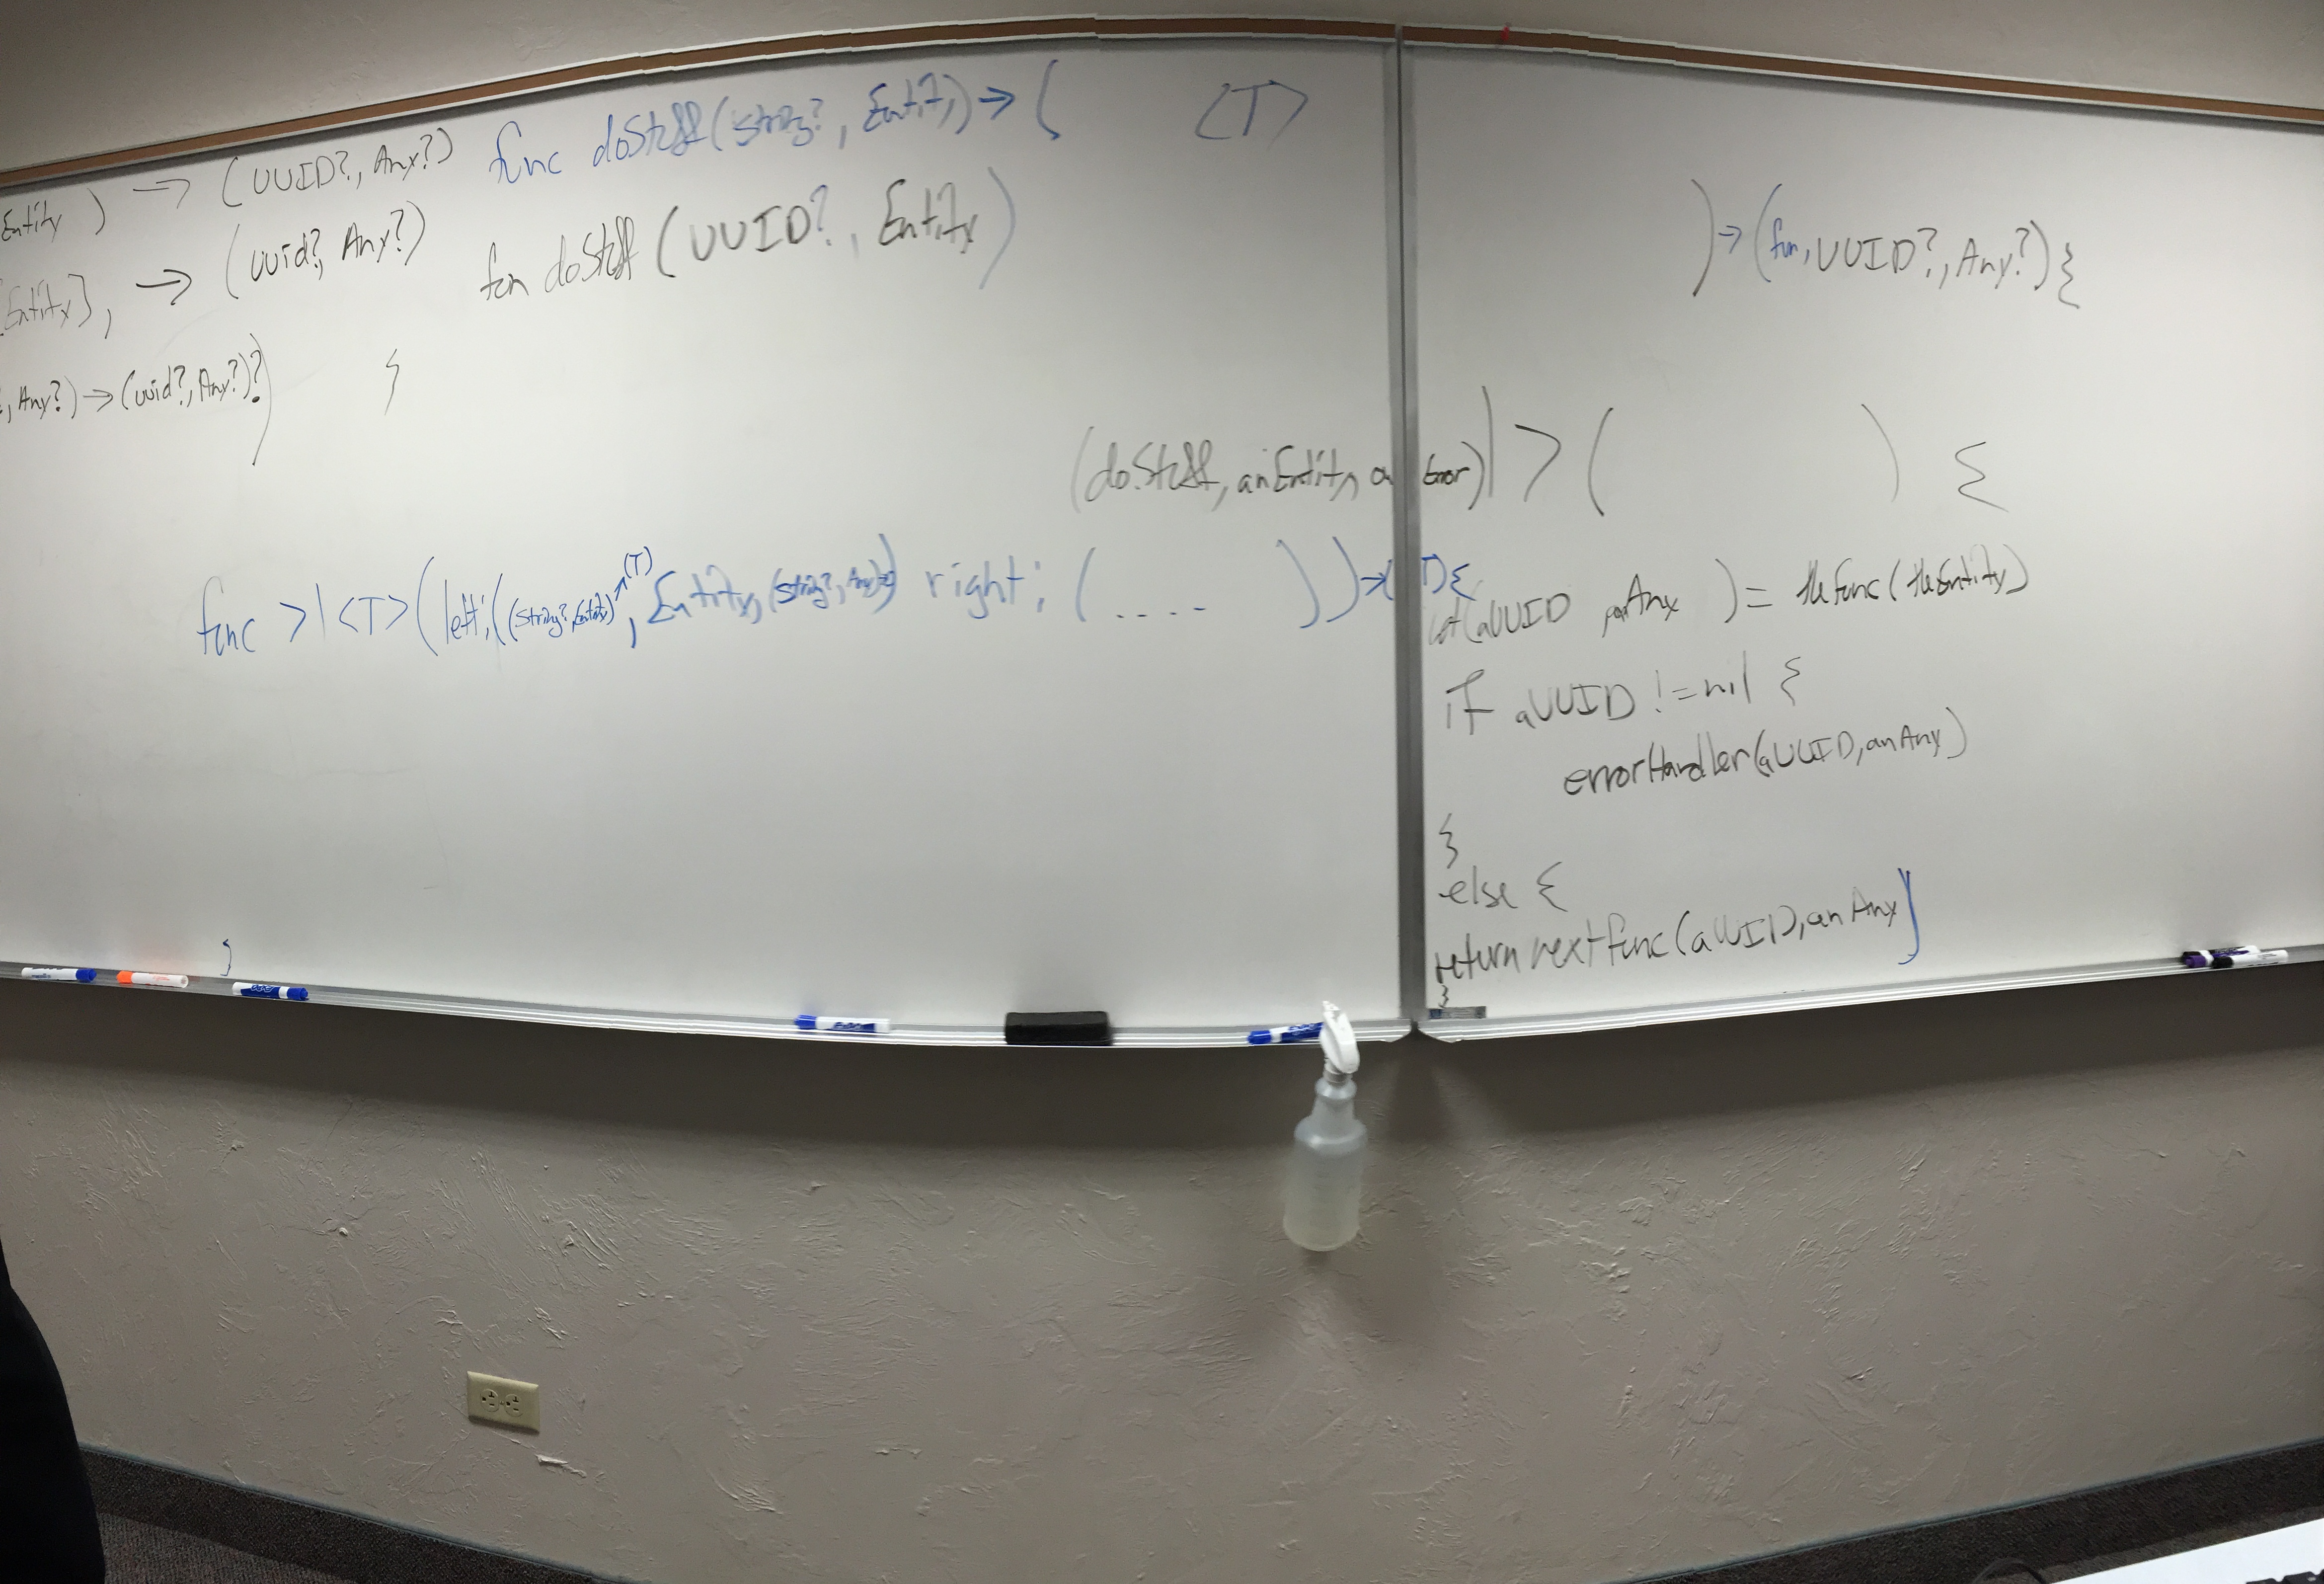 Entity ) → (UUID?, Any?)
Entity], → (uuid?, Any?)
, Any?) → (uuid?, Any?)?)
}
func doStuff(String?, Entity) → ( <T>
func doStuff (UUID?, Entity)
) → (fun, UUID?, Any?) {
(doStuff, anEntity, Error) |> ( ) {
func >| <T> (left: ((String?, Entity) → (T), Entity, (String?, Any?)) right: (.... )) → (T) {
let (aUUID, anAny ) = theFunc(theEntity)
if aUUID != nil {
errorHandler(aUUID, anAny)
}
else {
return nextfunc(aUUID, anAny)
}
}